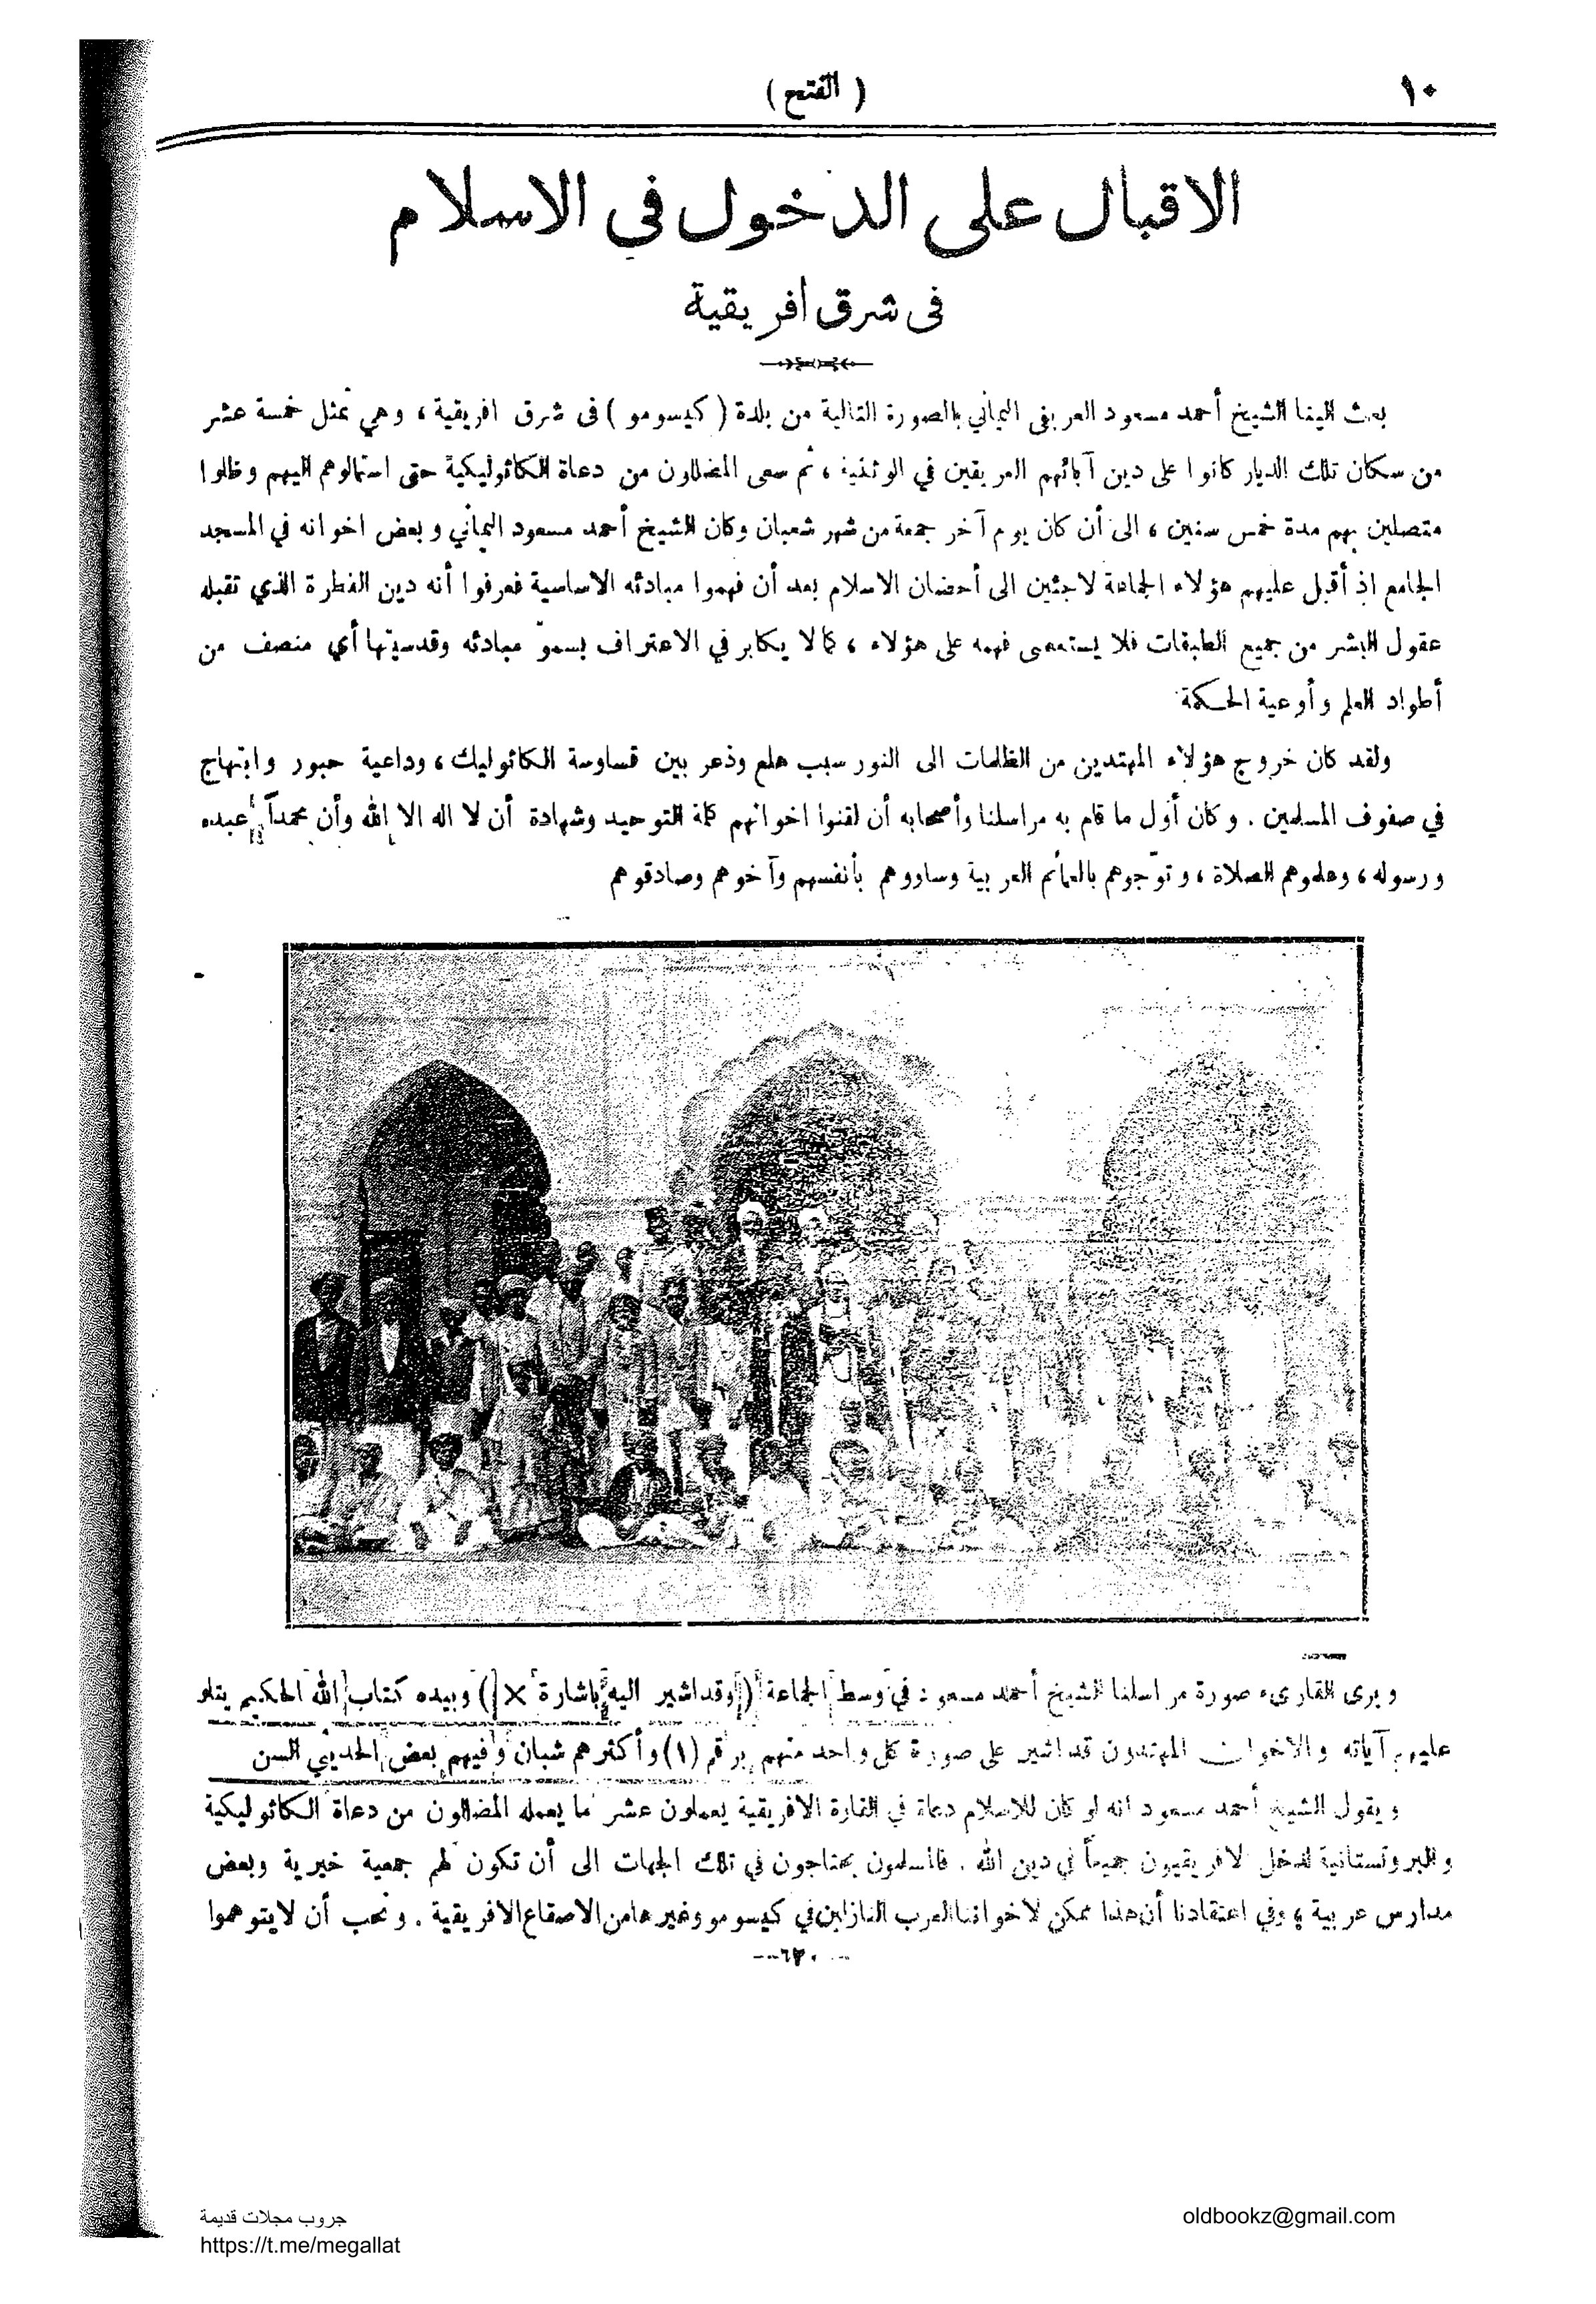 ١٠
( الفتح )
الاقبال على الدخول في الاسلام
في شرق افريقية
بعث الينا الشيخ أحمد مسعود العريفي اليماني بالصورة التالية من بلدة ( كيسومو ) في شرق افريقية ، وهي تمثل خمسة عشر
من سكان تلك الديار كانوا على دين آبائهم العريقين في الوثنية ، ثم سعى المضللون من دعاة الكاثوليكية حتى استمالوهم اليهم وظلوا
متصلين بهم مدة خمس سنين ، الى أن كان يوم آخر جمعة من شهر شعبان وكان الشيخ أحمد مسعود اليماني وبعض اخوانه في المسجد
الجامع اذ أقبل عليهم هؤلاء الجماعة لاجئين الى أحضان الاسلام بعد أن فهموا مبادئه الاساسية فعرفوا أنه دين الفطرة الذي تقبله
عقول البشر من جميع الطبقات فلا يستعصى فهمه على هؤلاء ، كما لا يكابر في الاعتراف بسموّ مبادئه وقدسيتها أي منصف من
أطواد العلم وأوعية الحكمة
ولقد كان خروج هؤلاء المهتدين من الظلمات الى النور سبب هلع وذعر بين قساوسة الكاثوليك ، وداعية حبور وابتهاج
في صفوف المسلمين . وكان أول ما قام به مراسلنا وأصحابه أن لقنوا اخوانهم كلمة التوحيد وشهادة أن لا اله الا الله وأن محمداً عبده
ورسوله ، وعلموهم الصلاة ، وتوّجوهم بالعمائم العربية وساووهم بأنفسهم وآخوهم وصادقوهم
ويرى القارىء صورة مراسلنا الشيخ أحمد مسعود في وسط الجماعة ( وقد اشير اليه باشارة × ) وبيده كتاب الله الحكيم يتلو
عليهم آياته والاخوان المهتدون قد اشير على صورة كل واحد منهم برقم (١) وأكثرهم شبان وفيهم بعض الحديثي السن
ويقول الشيخ أحمد مسعود انه لو كان للاسلام دعاة في القارة الافريقية يعملون عشر ما يعمله المضللون من دعاة الكاثوليكية
والبروتستانية لدخل الافريقيون جميعاً في دين الله . فالمسلمون يحتاجون في تلك الجهات الى أن تكون لهم جمعية خيرية وبعض
مدارس عربية ، وفي اعتقادنا أن هذا ممكن لاخواننا العرب النازلين في كيسومو وغيرها من الاصقاع الافريقية . ونحب أن لا يتوهموا
جروب مجلات قديمة
https://t.me/megallat
oldbookz@gmail.com